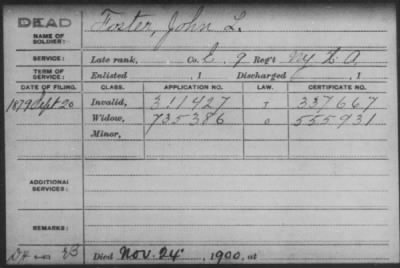 DEAD
NAME OF SOLDIER: Foster, John L.
SERVICE: Late rank, Co. L. 9 Reg't Ny H. A,
TERM OF SERVICE: Enlisted , 1 Discharged , 1
DATE OF FILING. CLASS. APPLICATION NO. LAW. CERTIFICATE NO.
1879 Sept 20 Invalid, 311427 337667
Widow, 735386 555931
Minor,
ADDITIONAL SERVICES:
REMARKS:
Died Nov. 24, 1900, at